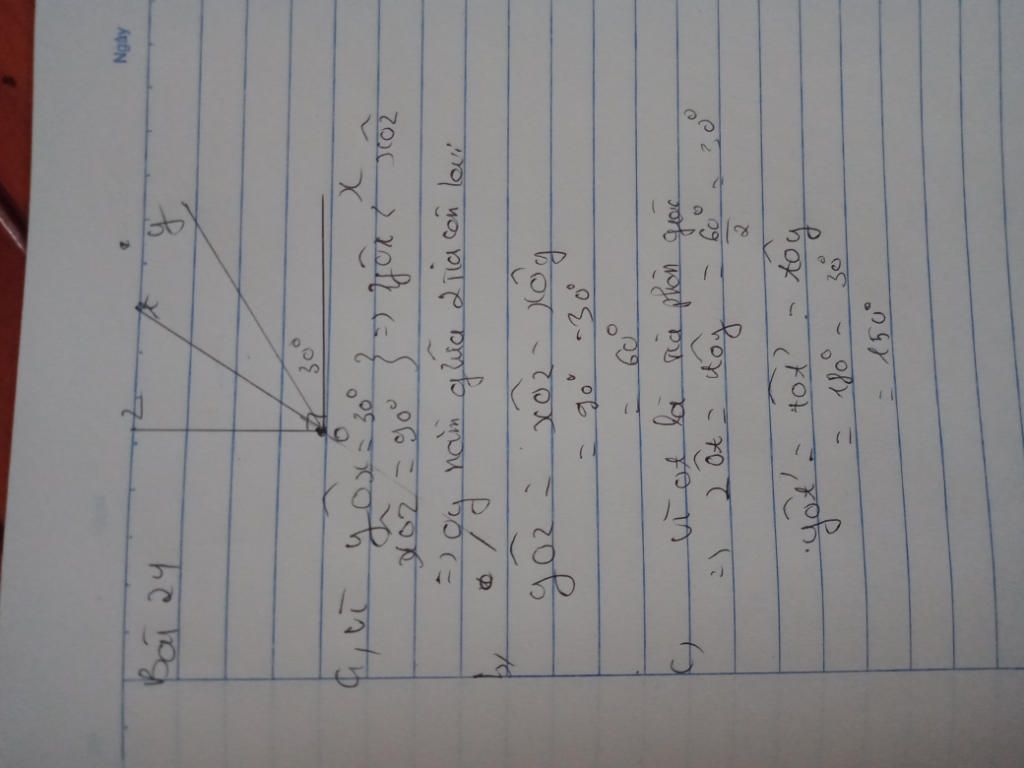 Ngày
Bài 24
z
t
y
30°
O
x
a, vì yôx = 30°
xôz = 90° } => yôx < xôz
=> oy nằm giữa 2 tia còn lại
b,
yôz = xôz - xôy
= 90° - 30°
= 60°
c, vì ot là tia phân góc
=> zôt = tôy = 60°/2 = 30°
yôt' = tôt' - tôy
= 180° - 30°
= 150°